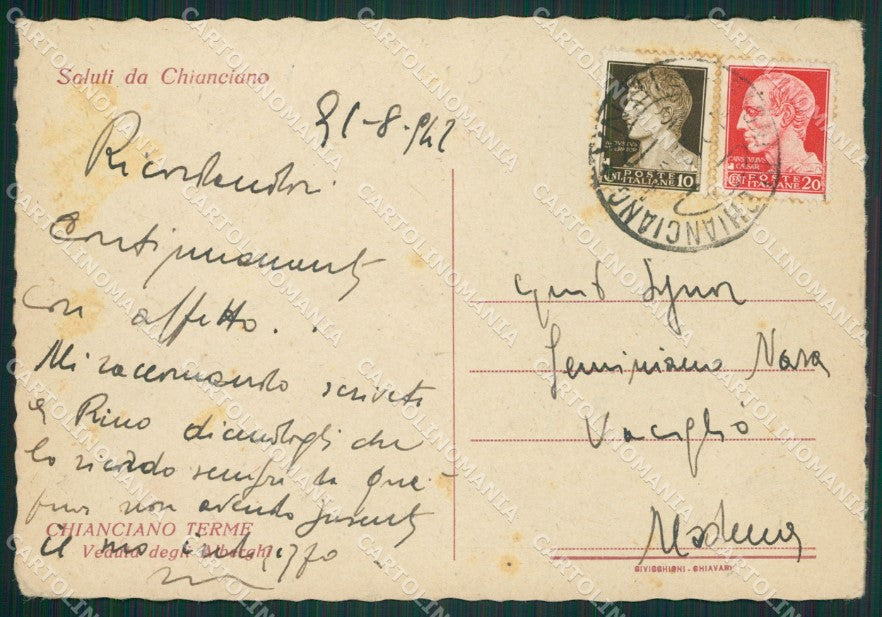 Saluti da Chianciano
21-8-942
Ricordandovi
continuamente
con affetto...
Mi raccomando scrivete
a Rino dicendogli che
lo ricordo sempre da que
pur non avendo presente
il suo indirizzo
CHIANCIANO TERME
Veduta degli Alberghi
AVGVSTVS
POSTE
ITALIANE
CENT. 10
CAIVS IVLIVS
CAESAR
POSTE
ITALIANE
CENT 20
CHIANCIANO
Gent Signor
Geminiano Nava
Vaciglio
Modena
GIVICGHIONI - CHIAVARI
CARTOLINOMANIA